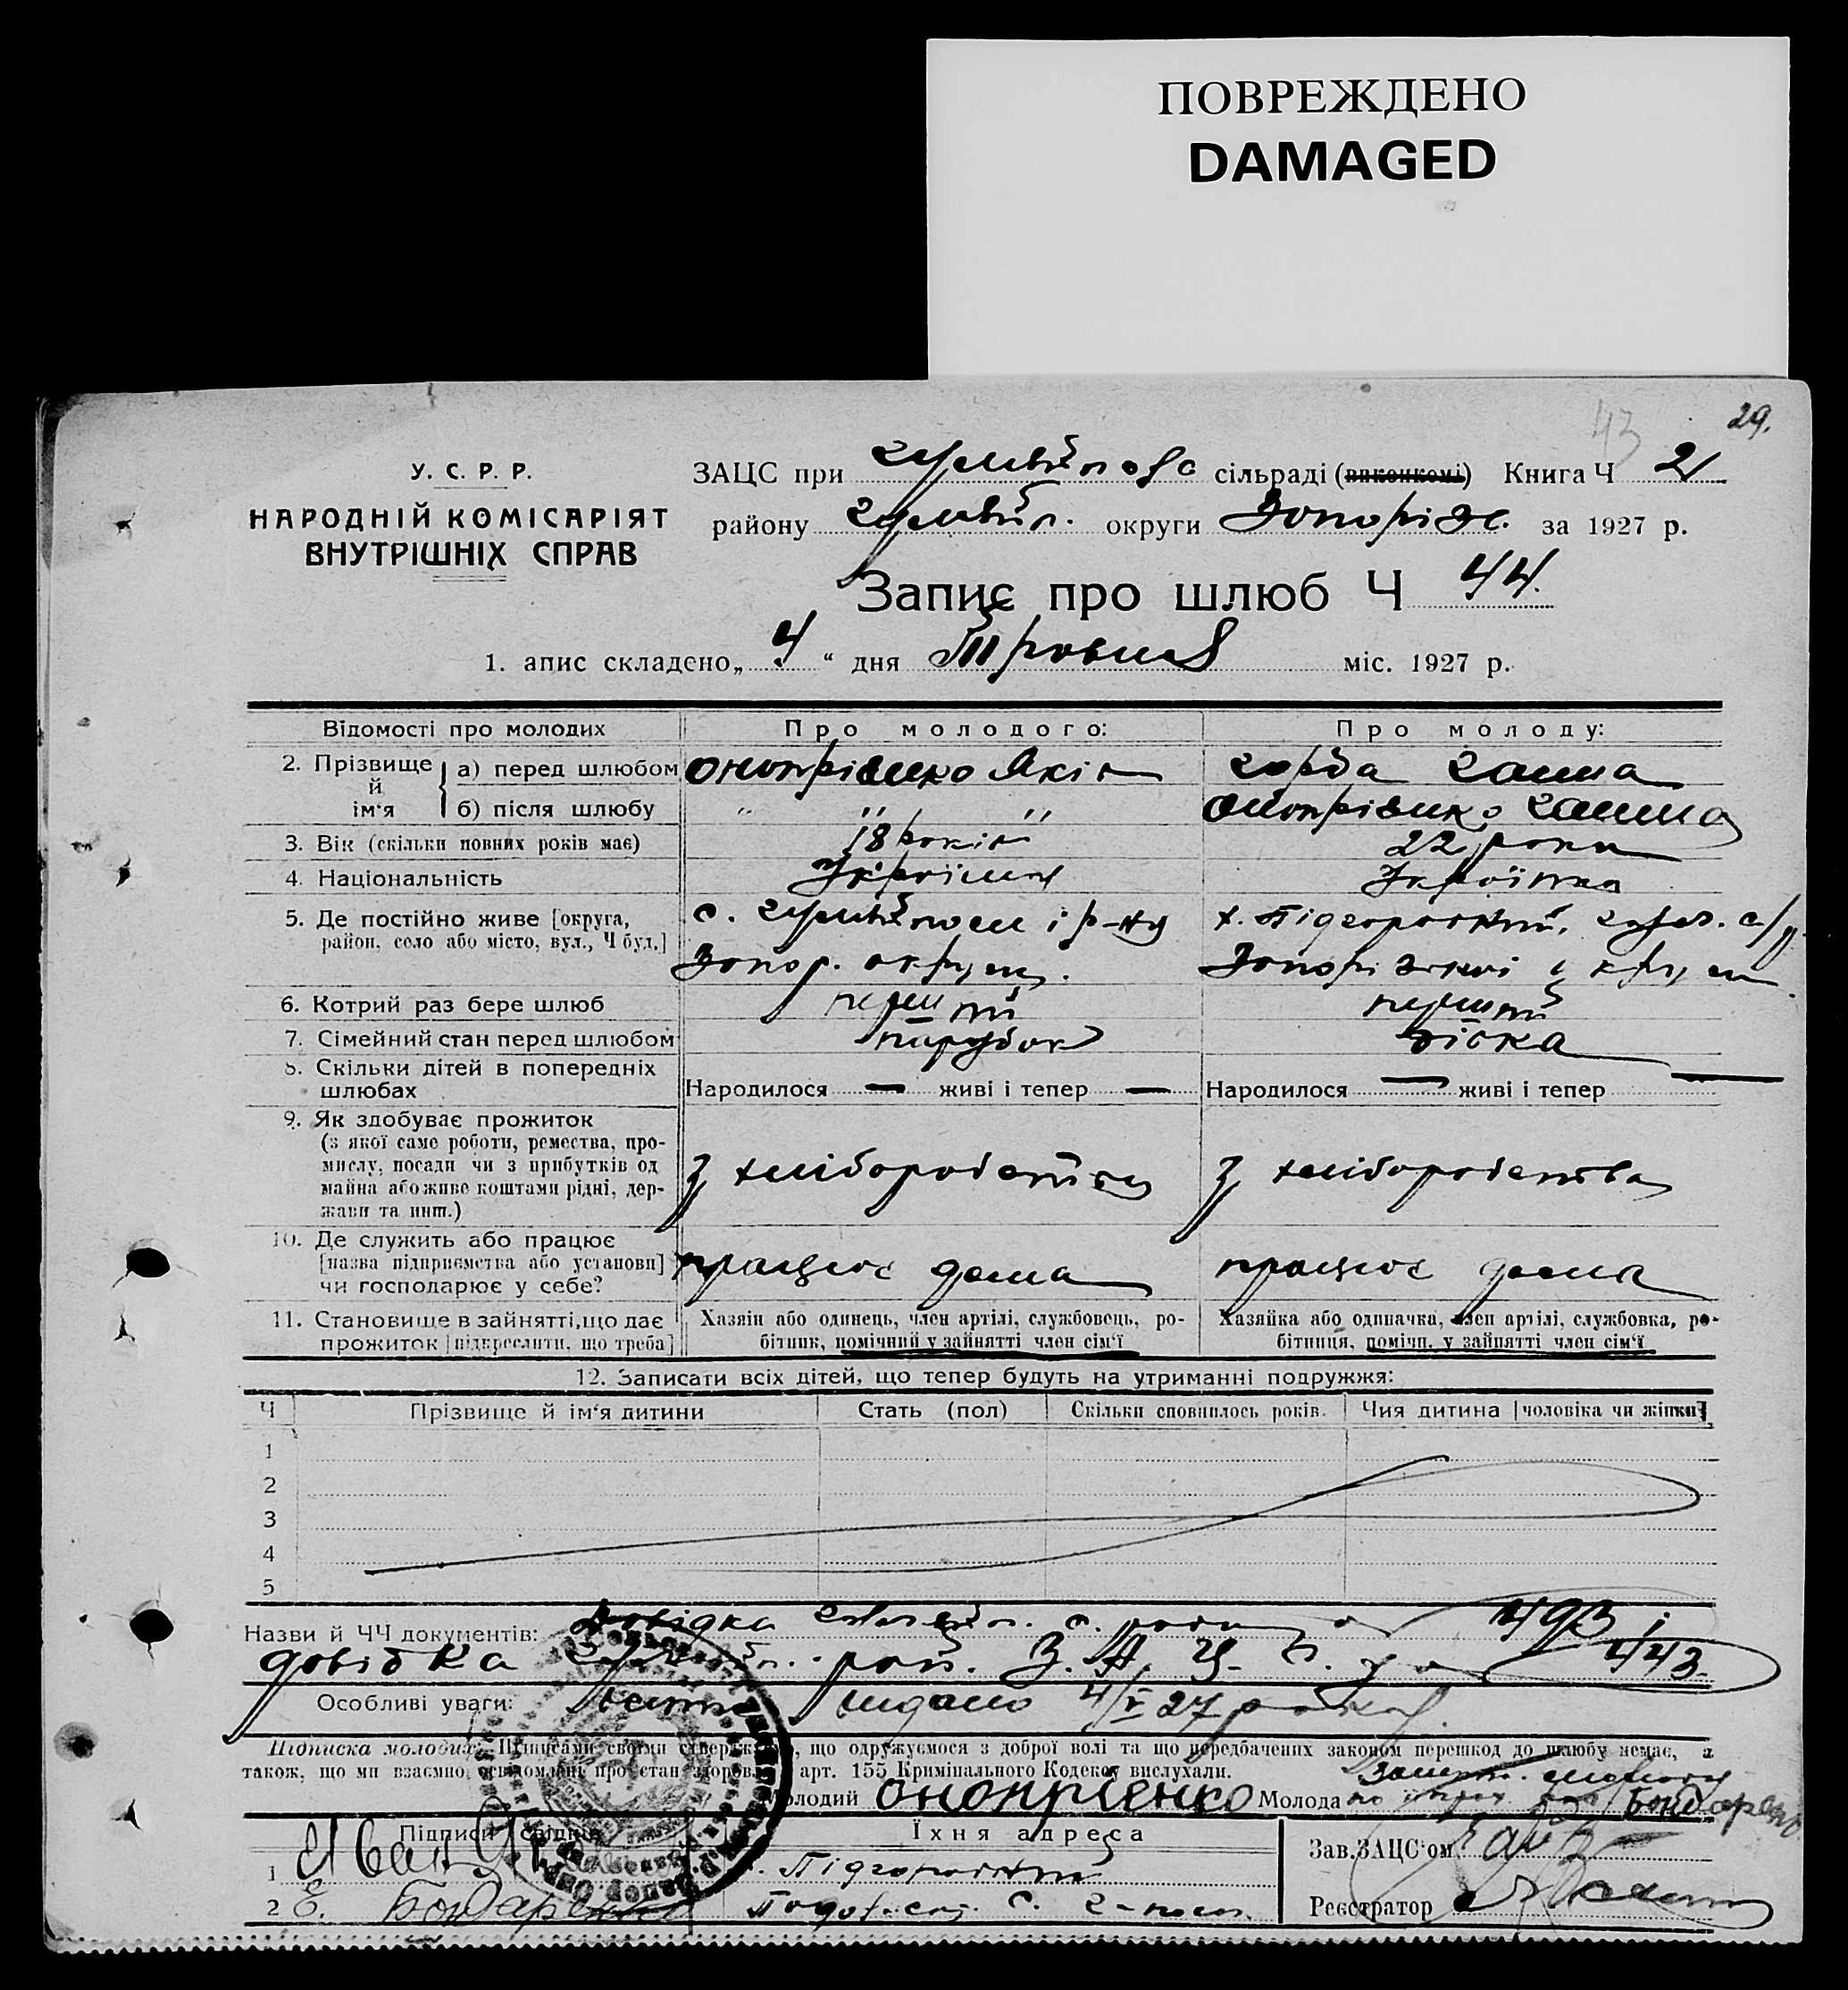 ПОВРЕЖДЕНО
DAMAGED
29.
43
У. С. Р. Р.
НАРОДНІЙ КОМІСАРІЯТ
ВНУТРІШНІХ СПРАВ
ЗАЦС при сільраді (виконкомі) Книга Ч 21
району Гуляйп. округи Запоріж. за 1927 р.
Запис про шлюб Ч 44.
1. апис складено „ 4 “ дня Травня міс. 1927 р.
Відомості про молодих Про молодого: Про молоду:
2. Прізвище й ім'я а) перед шлюбом Онопрієнко Яків Горба Ганна
б) після шлюбу " " " Онопрієнко Ганна
3. Вік (скільки повних років має) 18 років 22 роки
4. Національність Українець Українка
5. Де постійно живе [округа, район, село або місто, вул., Ч буд.] с. Гуляйполе і р-ну х. Підгороднії, с/р.
Запор. округи. Запоріжської округи.
6. Котрий раз бере шлюб перший перший
7. Сімейний стан перед шлюбом парубок дівка
8. Скільки дітей в попередніх шлюбах Народилося — живі і тепер — Народилося — живі і тепер —
9. Як здобуває прожиток
(з якої саме роботи, ремества, про-
мислу, посади чи з прибутків од
майна або живе коштами рідні, дер-
жави та инш.)
з хліборобства з хліборобства
10. Де служить або працює
[назва підприємства або установи]
чи господарює у себе?
працює дома працює дома
11. Становище в зайнятті, що дає
прожиток [підкреслити, що треба]
Хазяїн або одинець, член артілі, службовець, ро-
бітник, помічний у зайнятті член сім'ї
Хазяйка або одиначка, член артілі, службовка, ро-
бітниця, помічн. у зайнятті член сім'ї
12. Записати всіх дітей, що тепер будуть на утриманні подружжя:
Ч Прізвище й ім'я дитини Стать (пол) Скільки сповнилось років. Чия дитина [чоловіка чи жінки]
1
2
3
4
5
Назви й ЧЧ документів: Довідка с. ради 493 і
довідка рай. З.А.Г.С. 443
Особливі уваги: видано 4/V 27 року.
Підписка молодих: Підписами своїми стверджуємо, що одружуємося з доброї волі та що передбачених законом перешкод до шлюбу немає, а
також, що ми взаємно освідомлені про стан здоров'я арт. 155 Кримінального Кодексу вислухали.
Молодий Онопрієнко Молода Бондаренко
Підписи свідків Їхня адреса Зав. ЗАЦС'ом
1 Іван Підгороднії
2 Е. Бондаренко Реєстратор